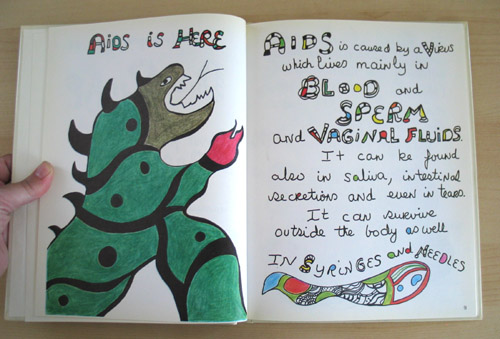 AIDS IS HERE
AIDS is caused by a Virus
which lives mainly in
BLOOD and
SPERM
and VAGINAL FLUIDS.
It can be found
also in saliva, intestinal
secretions and even in tears.
It can survive
outside the body as well
IN SYRINGES and NEEDLES